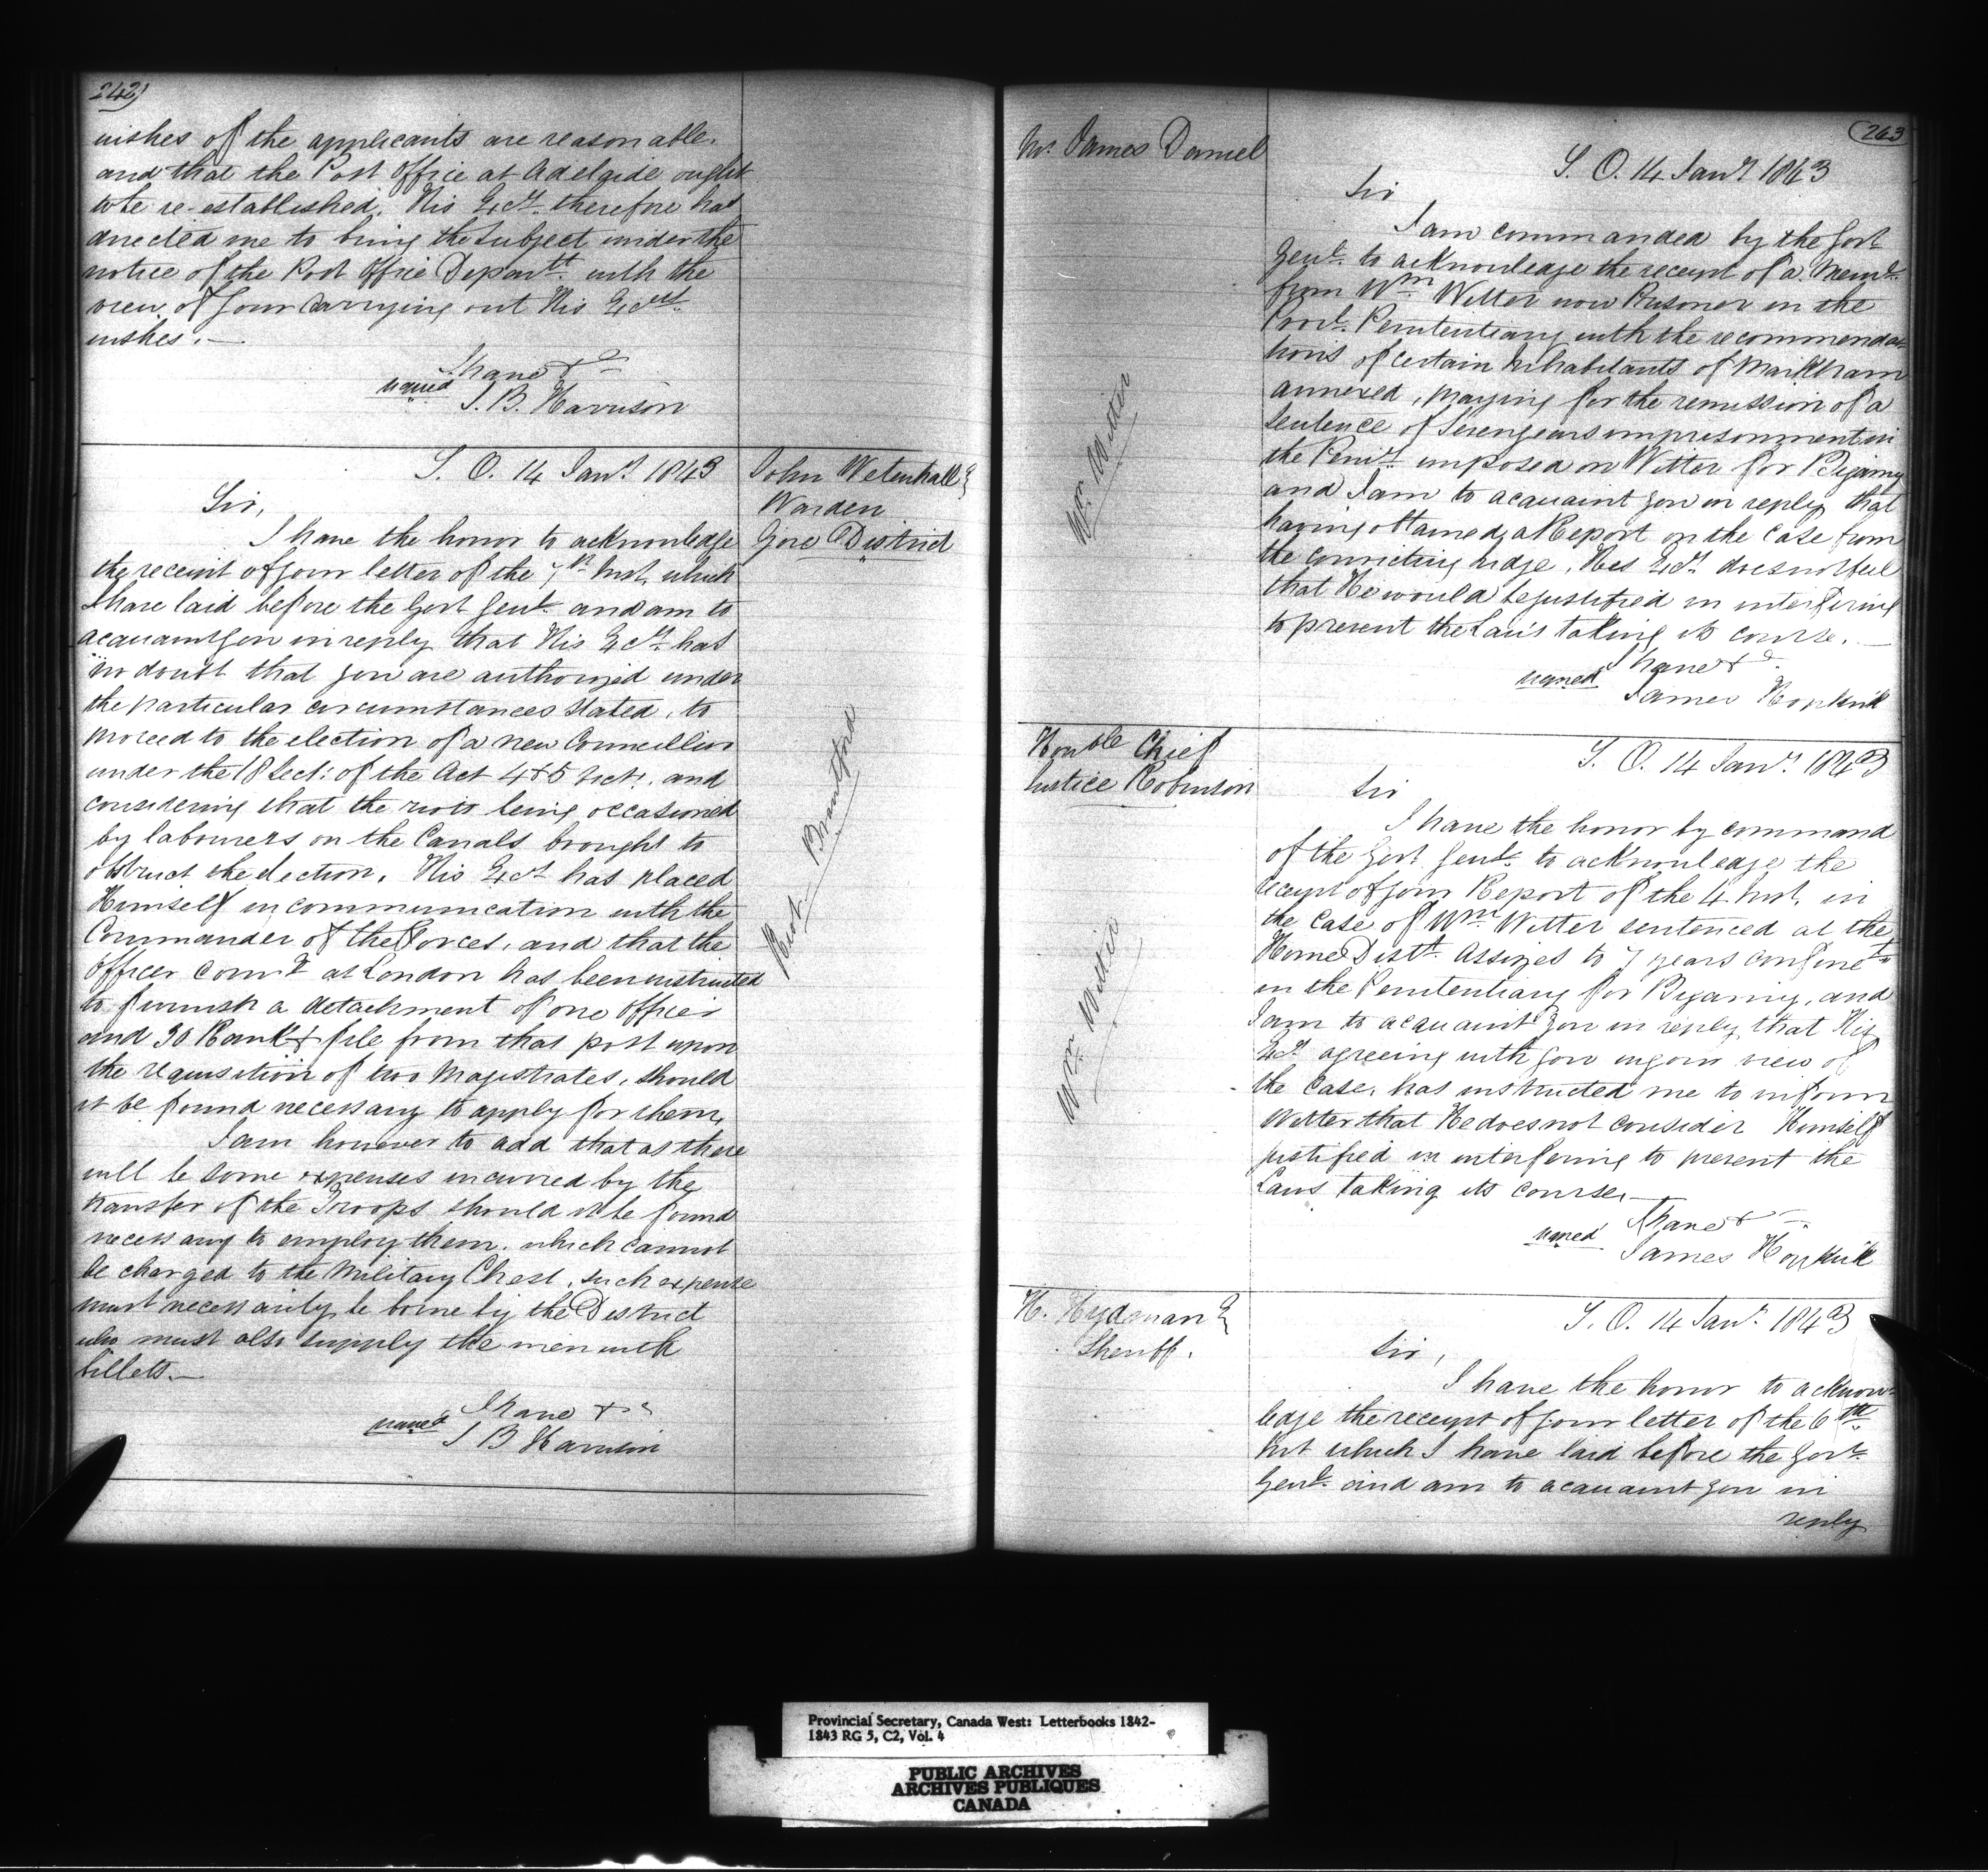 242)
wishes of the applicants are reasonable
and that the Post Office at Adelaide ought
to be re-established. His Excy. therefore has
directed me to bring the Subject under the
notice of the Post Office Departt. with the
view of your carrying out His Excys.
wishes. —
I have &c
signed S. B. Harrison
S. O. 14 Jany. 1843
John Wetenhall E
Warden
Gore District
Riot — Brantford
Sir,
I have the honor to acknowledge
the receipt of your letter of the 7th Inst, which
I have laid before the Govr Genl. and am to
acquaint you in reply that His Excy. has
no doubt that you are authorized under
the particular circumstances stated, to
proceed to the election of a new Councillor
under the 18 Sect: of the Act 4 & 5 Vict:. and
considering that the riots being occasioned
by labourers on the Canals brought to
obstruct the election, His Excy has placed
Himself in communication with the
Commander of the Forces, and that the
Officer Comg at London has been instructed
to furnish a detachment of one Officer
and 30 Rank & file from that post upon
the requisition of two Magistrates, should
it be found necessary to apply for them,
I am however to add that as there
will be some expenses incurred by the
transfer of the Troops should it be found
necessary to employ them, which cannot
be charged to the Military Chest, such expense
must necessarily be borne by the District
who must also supply the men with
billets. —
I have &c
signed S B Harrison
263
Mr. James Daniel
Wm. Witter
S. O. 14 Jany 1843
Sir
I am commanded by the Govr
Genl. to acknowledge the receipt of a Meml.
from Wm Witter now Prisoner in the
Provl. Penitentiary with the recommenda-
tions of certain Inhabitants of Markham
annexed, praying for the remission of a
sentence of Seven years imprisonment in
the Penity. imposed on Witter for Bigamy
and I am to acquaint you in reply that
having obtained a Report on the case from
the convicting Judge, His Excy. does not feel
that He would be justified in interfering
to prevent the Law's taking its course. —
I have &c.
signed James Hopkirk
Honble Chief
Justice Robinson
Wm. Witter
S. O. 14 Jany. 1843
Sir
I have the honor by command
of the Govr Genl. to acknowledge the
receipt of your Report of the 4 Inst, in
the case of Wm Witter sentenced at the
Home Distt. Assizes to 7 years confinet.
in the Penitentiary for Bigamy, and
I am to acquaint you in reply that His
Excy agreeing with you in your view of
the case, has instructed me to inform
Witter that He does not consider Himself
justified in interfering to prevent the
Laws taking its course, —
I have &c
signed James Hopkirk
Sheriff.
S. O. 14 Jany. 1843
Sir,
I have the honor to acknow-
ledge the receipt of your letter of the 6th.
Inst which I have laid before the Govr.
Genl. and am to acquaint you in
reply
Provincial Secretary, Canada West: Letterbooks 1842-
1843 RG 5, C2, Vol. 4
PUBLIC ARCHIVES
ARCHIVES PUBLIQUES
CANADA